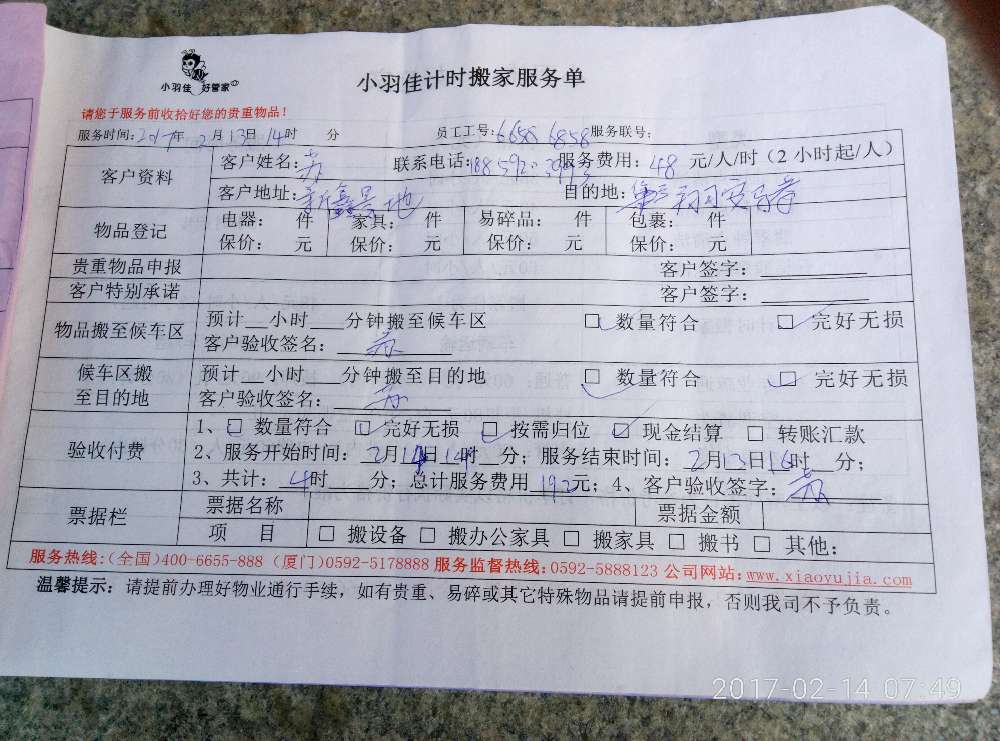 小羽佳 好管家
小羽佳计时搬家服务单
请您于服务前收拾好您的贵重物品！
服务时间：2017年 2月 13日 14时 分 员工工号：6658 6858 服务联号：
客户资料 客户姓名：苏 联系电话： 服务费用：48 元/人/时（2小时起/人）
客户地址：新鑫景地 目的地：
物品登记 电器： 件 家具： 件 易碎品： 件 包裹： 件
保价： 元 保价： 元 保价： 元 保价： 元
贵重物品申报 客户签字：
客户特别承诺 客户签字：
物品搬至候车区 预计__小时___分钟搬至候车区 □ 数量符合 □ 完好无损
客户验收签名：苏
候车区搬至目的地 预计__小时___分钟搬至目的地 □ 数量符合 □ 完好无损
客户验收签名：苏
验收付费 1、□ 数量符合 □ 完好无损 □ 按需归位 □ 现金结算 □ 转账汇款
2、服务开始时间：2月 日14时__分；服务结束时间：2月13日16时__分；
3、共计：4时___分；总计服务费用 192元；4、客户验收签字：苏
票据栏 票据名称 票据金额
项 目 □ 搬设备 □ 搬办公家具 □ 搬家具 □ 搬书 □ 其他：
服务热线：（全国）400-6655-888（厦门）0592-5178888 服务监督热线：0592-5888123 公司网站：www.xiaoyujia.com
温馨提示：请提前办理好物业通行手续，如有贵重、易碎或其它特殊物品请提前申报，否则我司不予负责。
2017-02-14 07:49